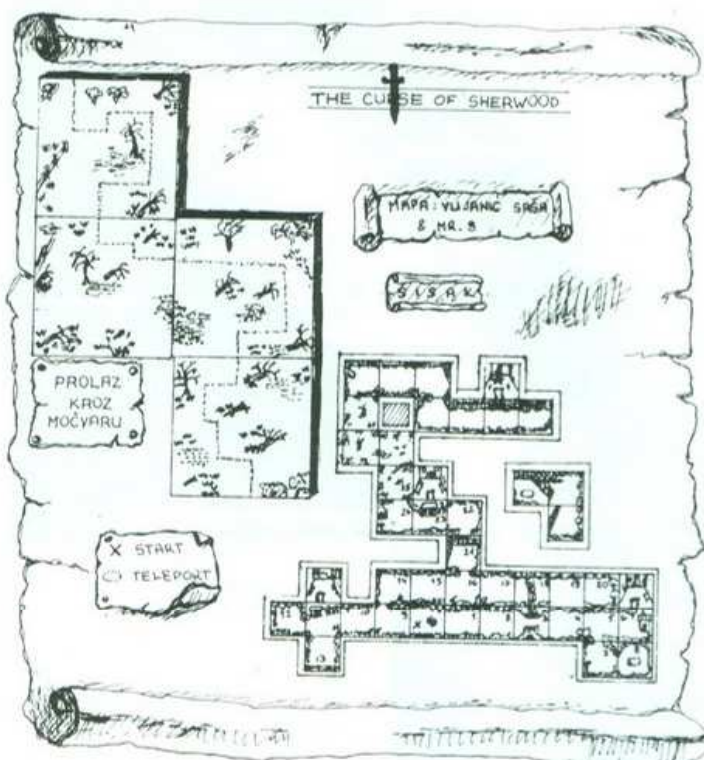 THE CURSE OF SHERWOOD
MAPA: VUJANIC SAŠA
& MR. S
SISAK
PROLAZ
KROZ
MOČVARU
X START
TELEPORT